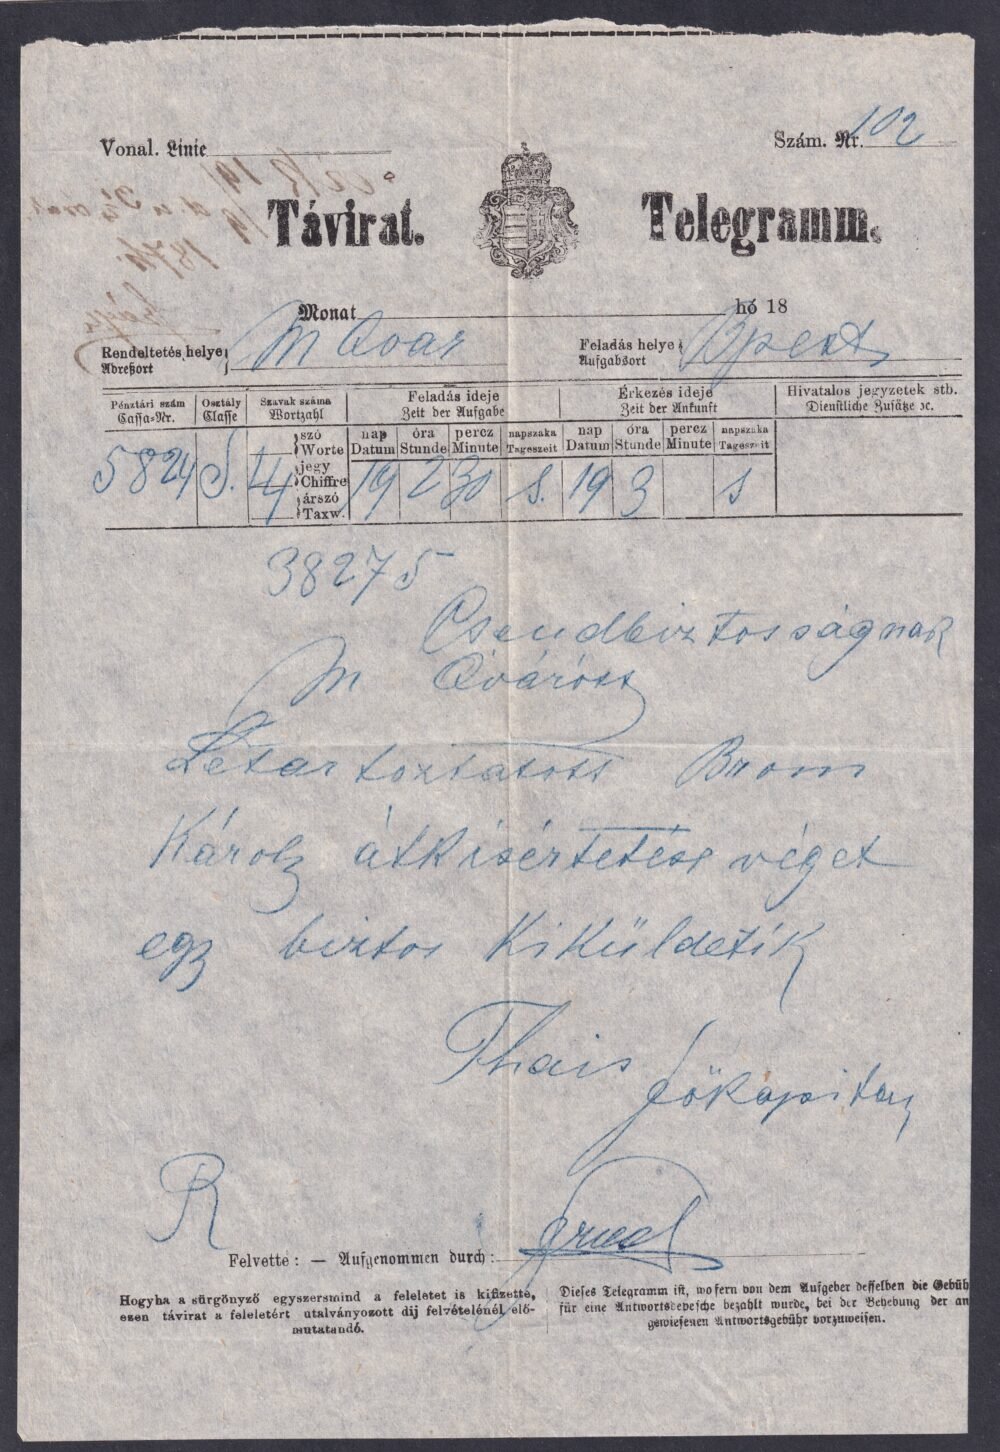 Vonal. Linie
Szám. Nr. 102
Távirat. Telegramm.
Monat hó 18
Rendeltetés helye
Adreßort
M Ovar
Feladás helye
Aufgabsort
Bpest
Pénztári szám
Cassa-Nr.
Osztály
Classe
Szavak száma
Wortzahl
Feladás ideje
Zeit der Aufgabe
Érkezés ideje
Zeit der Ankunft
Hivatalos jegyzetek stb.
Dienstliche Zusätze ꝛc.
szó
Worte
jegy
Chiffre
árszó
Taxw.
nap
Datum
óra
Stunde
perez
Minute
napszaka
Tageszeit
nap
Datum
óra
Stunde
perez
Minute
napszaka
Tageszeit
5824 S. 14 19 2 30 s. 19 3 s
38275
Csendbiztosságnak
M Óváross
Letartoztatott Brom
Károly átkisértetése véget
egy biztos kiküldetik
Thais
főkapitany
R
Felvette: — Aufgenommen durch:
Hogyha a sürgönyző egyszersmind a feleletet is kifizette,
ezen távirat a feleletért utalványozott dij felvételénél elő-
mutatandó.
Dieses Telegramm ist, wofern von dem Aufgeber desselben die Gebüh
für eine Antwortsdepesche bezahlt wurde, bei der Behebung der an
gewiesenen Antwortsgebühr vorzuweisen.